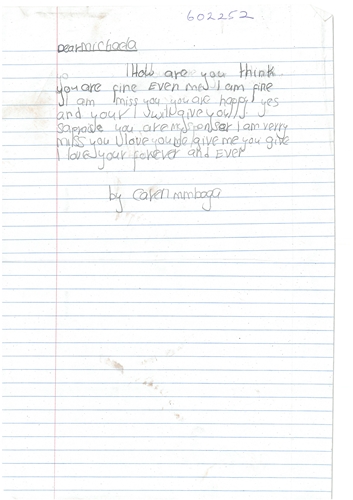 602252
Dear michaela
How are you think
you are fine Even me I am fine
I am miss you you are happy yes
and your I will give you
sapprise you are my sponser I am verry
miss you I love you give me you give
I love your forever and Ever
by caren mmboga